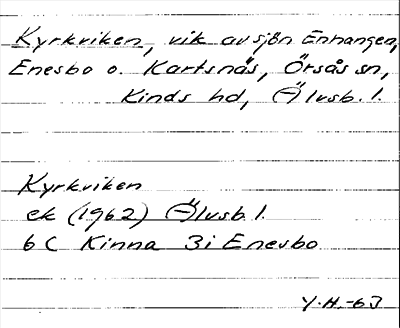 Kyrkviken, vik av sjön Enhangen,
Enesbo o. Kartsnäs, Örsås sn,
Kinds hd, Älvsb. l.
Kyrkviken
ek (1962) Älvsb l.
6 C Kinna 3i Enesbo
Y.H.-63